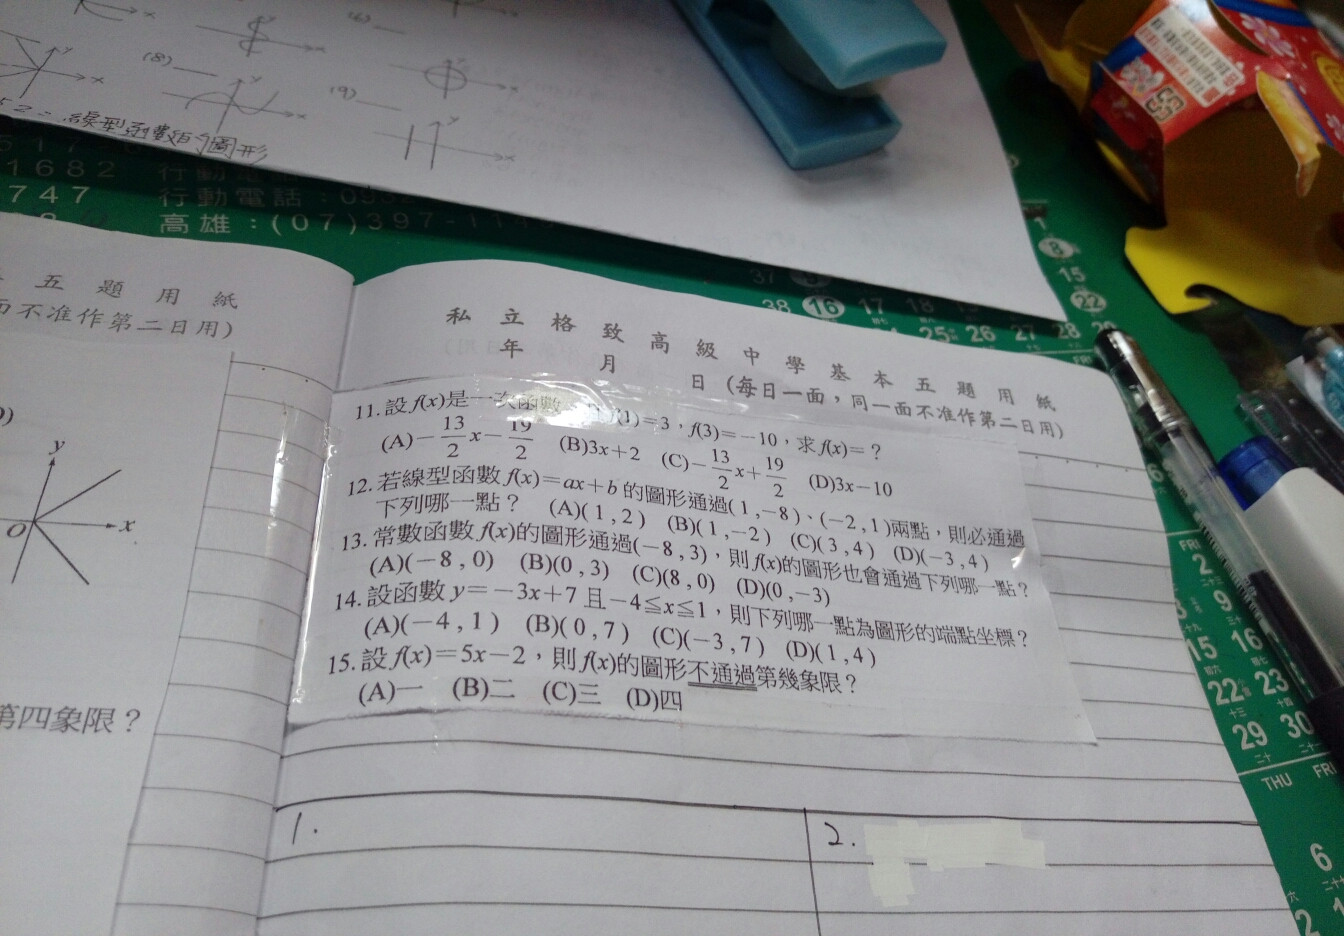 (6)
(8)
(9)
線型函數的圖形
1682 行動電
747 行動電話:09
高雄:(07)397-11
五題用紙
不准作第二日用)
y
O
x
第四象限?
私立格致高級中學基本五題用紙
年 月 日(每日一面,同一面不准作第二日用)
11.設f(x)是一次函數 f(1)=3,f(3)=-10,求f(x)=?
(A)-13/2x-19/2 (B)3x+2 (C)-13/2x+19/2 (D)3x-10
12.若線型函數f(x)=ax+b的圖形通過(1,-8)、(-2,1)兩點,則必通過
下列哪一點? (A)(1,2) (B)(1,-2) (C)(3,4) (D)(-3,4)
13.常數函數f(x)的圖形通過(-8,3),則f(x)的圖形也會通過下列哪一點?
(A)(-8,0) (B)(0,3) (C)(8,0) (D)(0,-3)
14.設函數y=-3x+7且-4≦x≦1,則下列哪一點為圖形的端點坐標?
(A)(-4,1) (B)(0,7) (C)(-3,7) (D)(1,4)
15.設f(x)=5x-2,則f(x)的圖形不通過第幾象限?
(A)一 (B)二 (C)三 (D)四
1.
2.
8
15
22
37
38 16 17 18
25 26 27 28 29
FRI
2
9
15 16
22 23
29 30
THU FRI
6